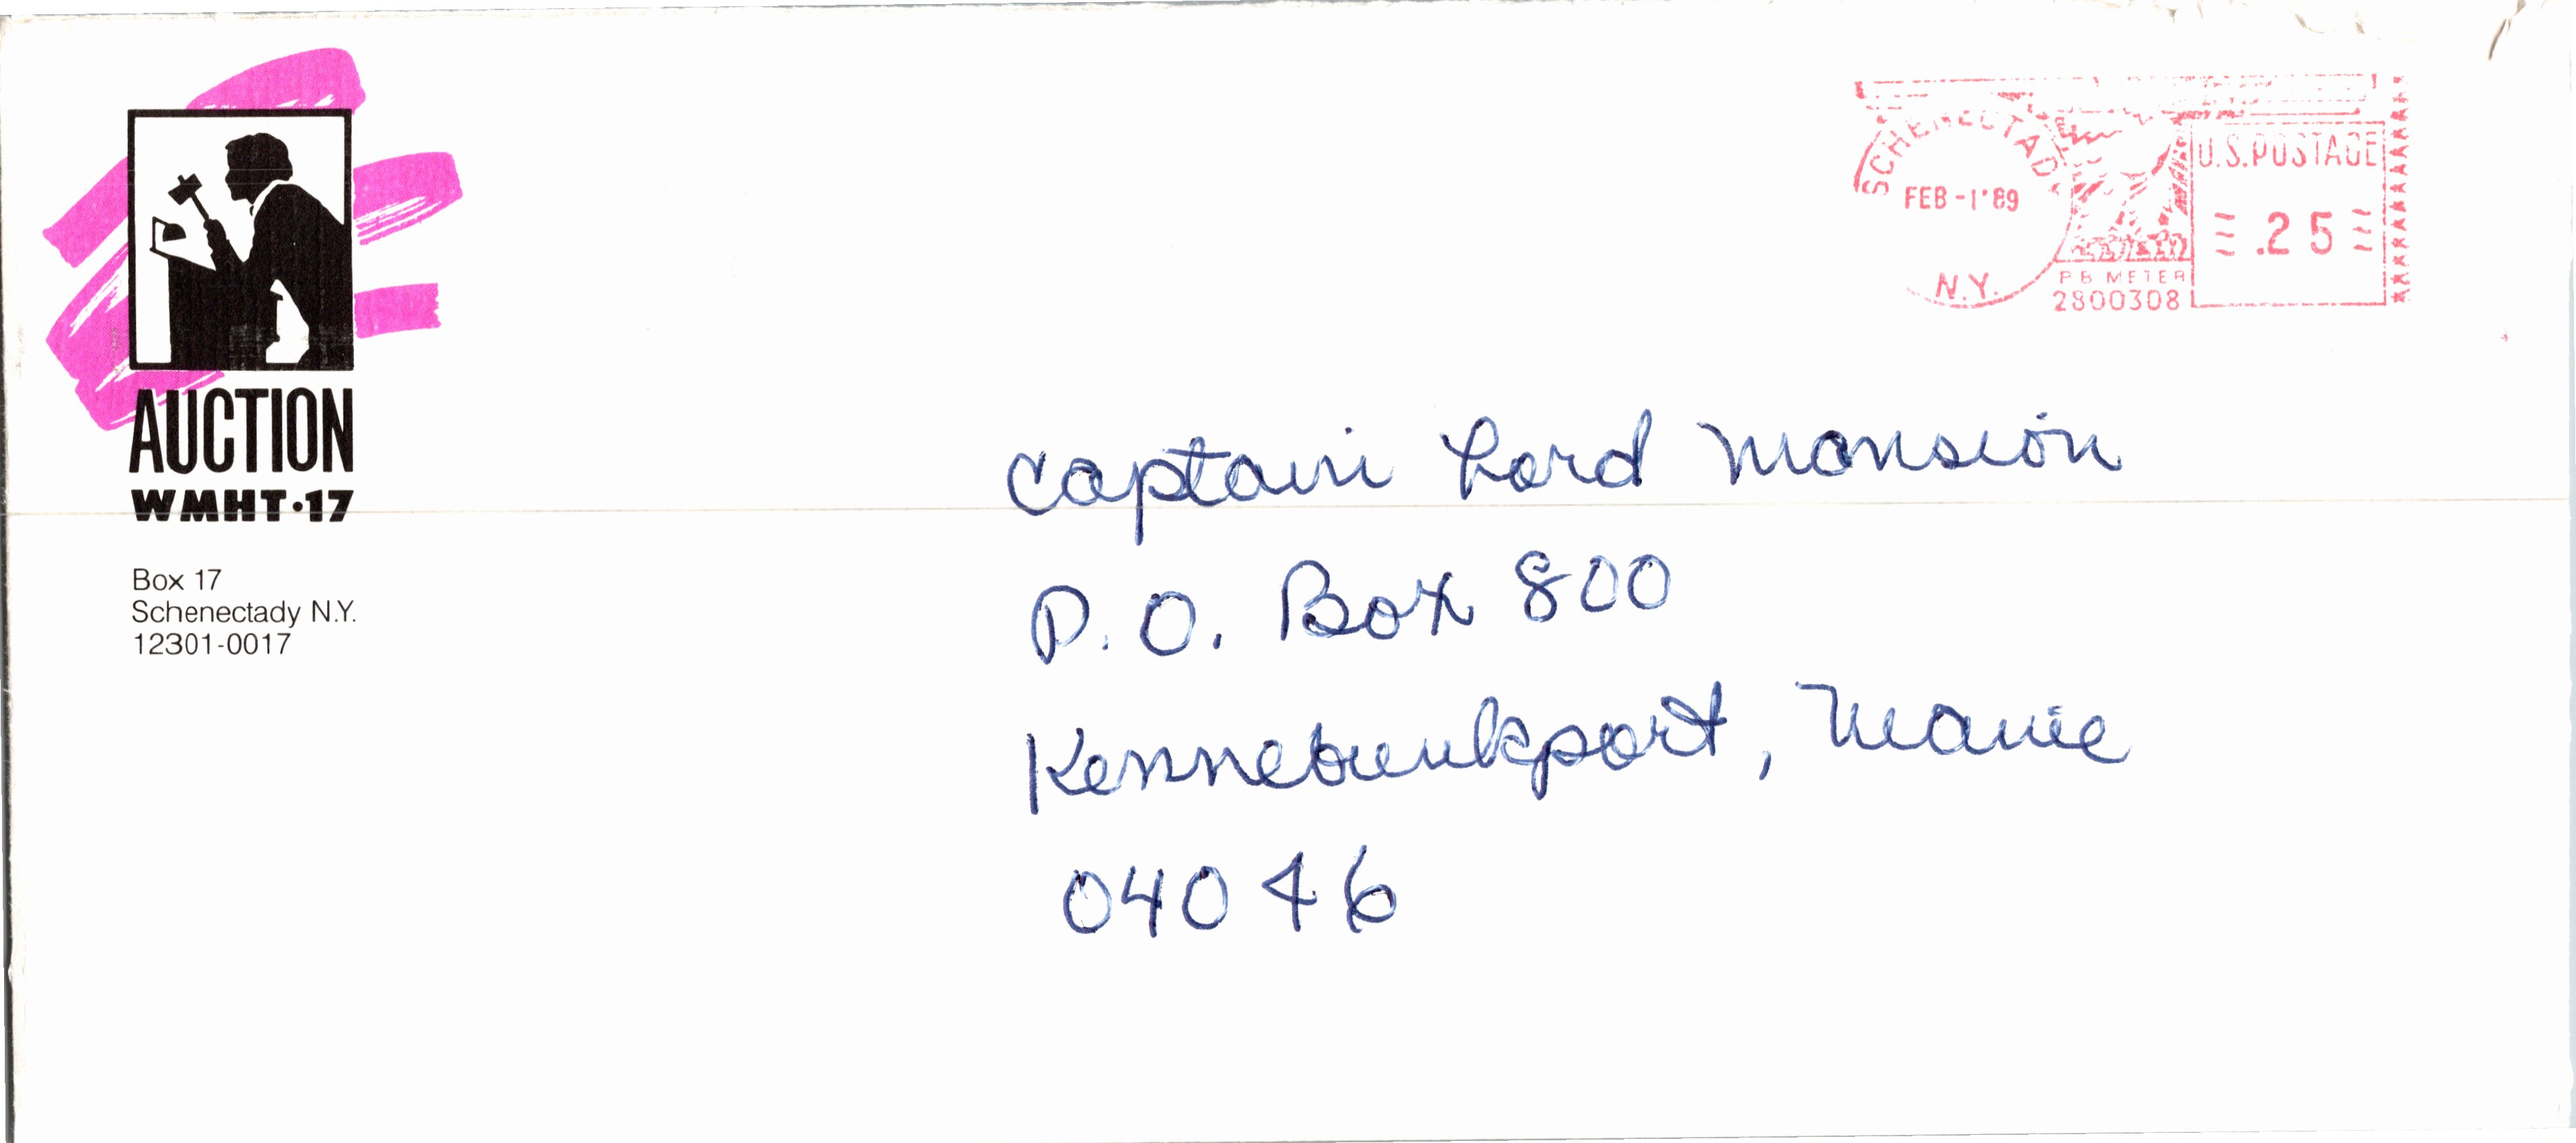 AUCTION
WMHT·17
Box 17
Schenectady N.Y.
12301-0017
SCHENECTADY
FEB -1'89
N.Y.
P B METER
2800308
U.S. POSTAGE
.25
Captain Lord Mansion
P.O. Box 800
Kennebunkport, Maine
04046